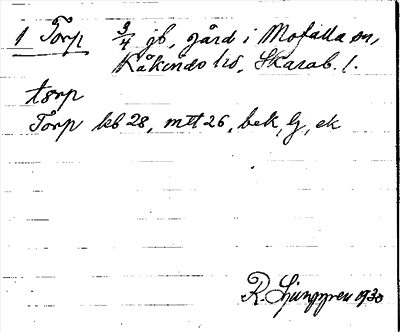 1 Torp 3/4 jb, gård i Mofalla sn,
Kåkinds hd, Skarab. l.
tɔrp
Torp kb 28, mtt 26, bek, lj, ek
R. Ljunggren 1930